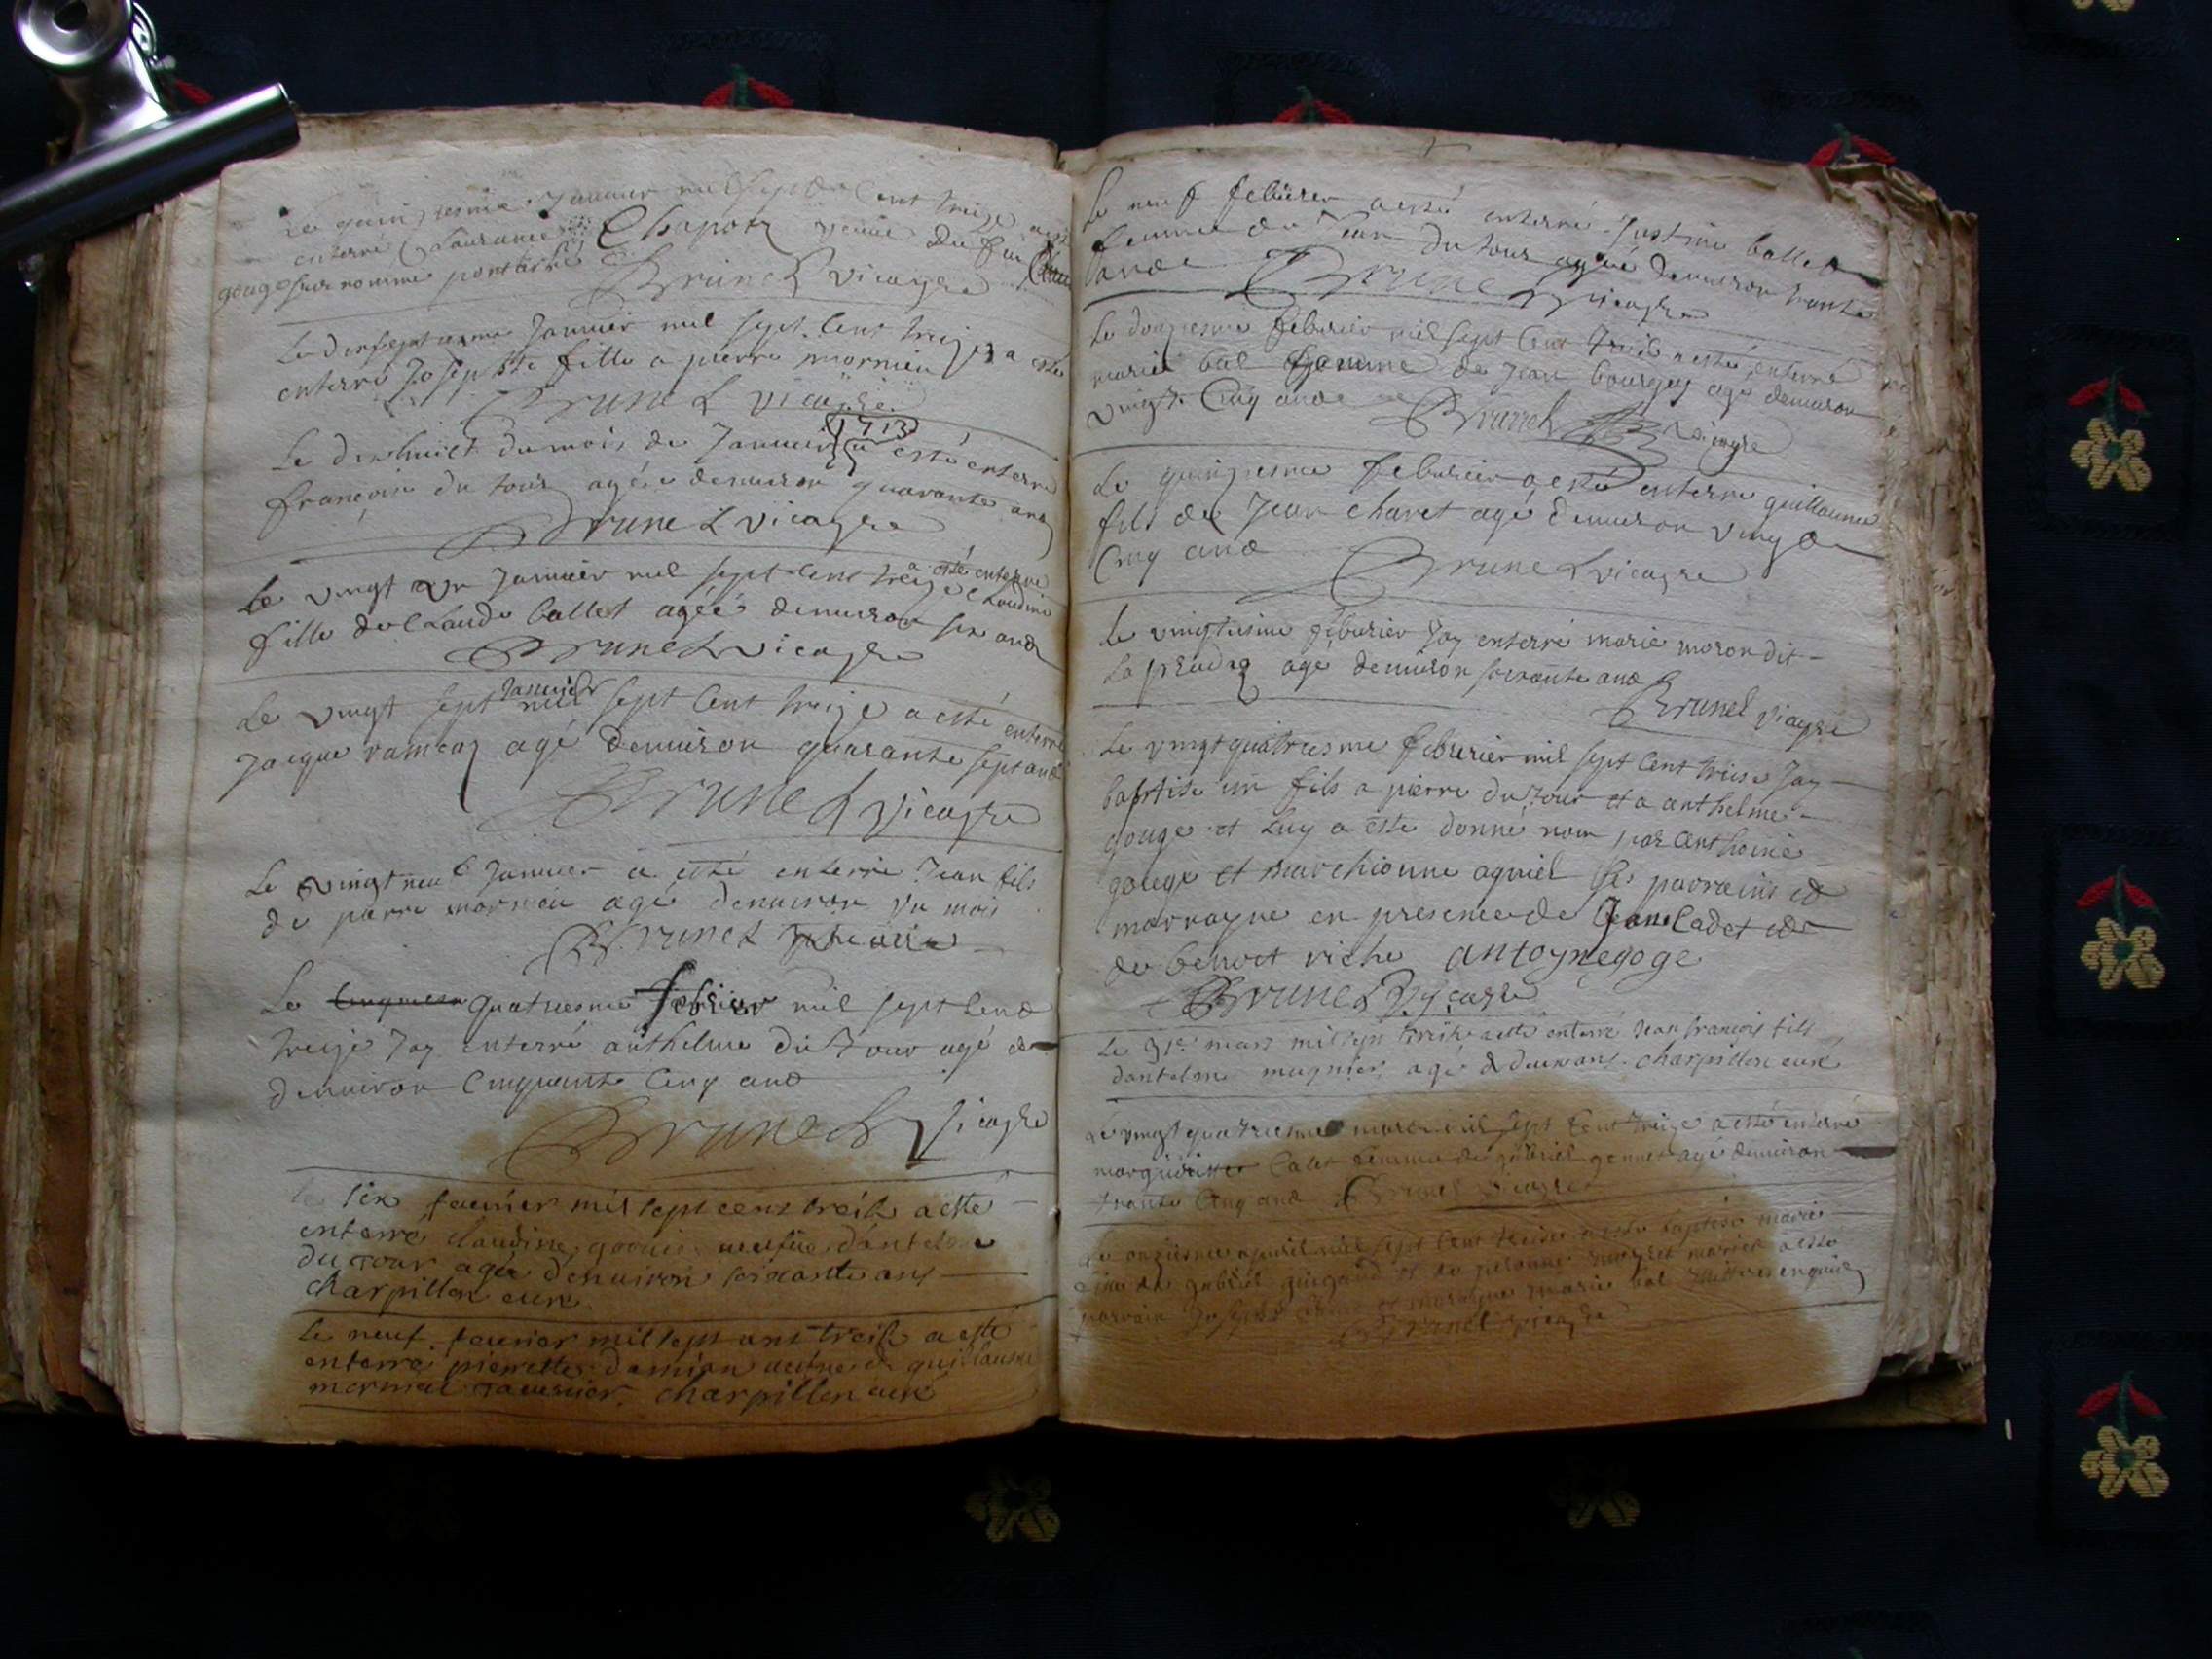 Le quinziesme Janvier mil sept cent treize a esté
enterré Laurance Chapotz veuve du feu Claude
gouge surnommé
Brunet vicayre
Le dixseptiesme Janvier mil sept cent treize a esté
enterré Josephte fille a pierre mornieu
Brunet vicayre
1713
Le dixhuict du mois de Janvier a esté enterré
françoise du tour agée denuiron quarante ans
Brunet vicayre
a esté enterré
Le vingt un Janvier mil sept cent treize claudine
fille de Claude ballet agéé denuiron six ans
Brunet vicayre
Janvier
Le vingt sept mil sept Cent treize a esté enterré
Jacque ramcaz agé denuiron quarante sept ans
Brunet vicayre
Le vingt neuf Janvier a esté enterré Jean fils
de pierre mornieu agé denuiron un mois
Brunet vicaire
Le quatriesme febvrier mil sept cent
treize Jay enterré anthelme du Tour agé de
denuiron Cinquante Cinq ans
Brunet vicayre
le six feurier mil sept cens treise a esté
enterré claudine ueufue dantelme
du Tour agée denuiron soixante ans
charpillon curé
Le neuf feurier mil sept cens treise a esté
enterré pierrette damian ueufue de guillaume
mermet charpillon curé
Le neuf feburier a esté enterré Justine ballet
femme de Jean du tour agéé denuiron trante
ans
Brunet vicayre
Le douziesme feburier mil sept Cent treise a esté enterré
marie bal femme de Jean bourgey agé denuiron
vingt Cinq ans Brunet vicayre
Le quinziesme feburier a esté enterré guillaume
fils de Jean charet agé denuiron vingt
Cinq ans Brunet vicayre
Le vingtiesme feburier Jay enterré marie moron dit
La agé denuiron soixante ans
Brunet vicayre
Le vingtquatriesme feburier mil sept Cent treise Jay
baptisé un fils a pierre du Tour et a anthelme
gouge et Luy a este donné nom par anthoine
gouge et marchionne aquiel ses parrains et
marrayne en presence de Jean Cadet et
de benoit riche antoyne goge
Brunet vycayre
Le mars mil sept treise a esté enterré Jean françois fils
dantelme mugnier agé de deux ans charpillon curé
Le vingtquatriesme mars mil sept Cent treize a esté enterré
margueritte Calet femme de gabriel gennet agé denuiron
trante Cinq ans Brunet vicayre
Le onziesme apuril mil sept Cent treise a esté baptisé marie
fille de gabriel guigard et de peronne et a esté
parrain Joseph et marayne marie bal
Brunet vicayre